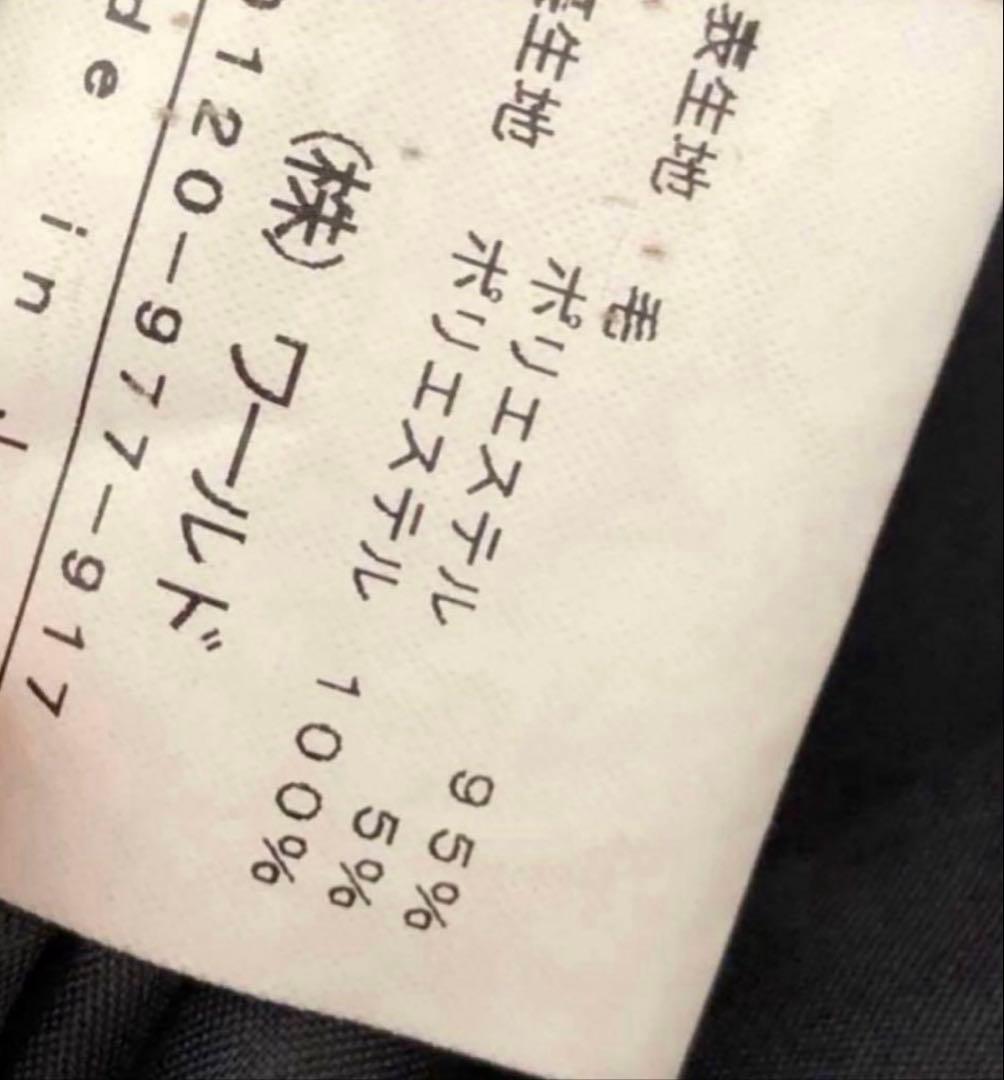 表生地 毛 95%
ポリエステル 5%
裏生地 ポリエステル 100%
(株) ワールド
0120-977-917
de in